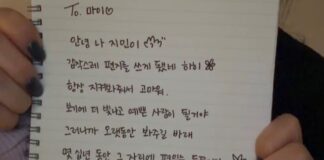 To. 마이♡
안녕 나 지민이
갑작스레 편지를 쓰게 됐네 히히
항상 지켜봐줘서 고마워.
보기에 더 빛나고 예쁜 사람이 될거야
그러니까 오랫동안 봐주길 바래
몇 십년 동안 그 자리에